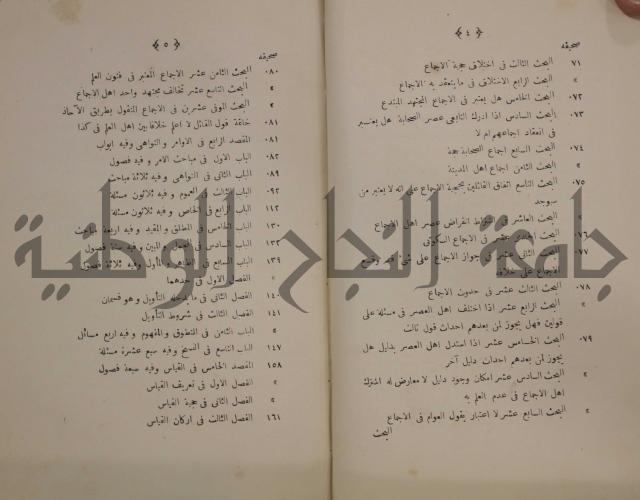 ﴿ ٤ ﴾
صحيفه
٧١ البحث الثالث فى اختلاف حجية الاجماع
» البحث الرابع الاختلاف فى ما ينعقد به الاجماع
٠٧٢ البحث الخامس هل يعتبر فى الاجماع المجتهد المبتدع
٠٧٣ البحث السادس اذا ادرك التابعى عصر الصحابة هل يعتبر
فى انعقاد اجماعهم ام لا
٠٧٤ البحث السابع اجماع الصحابة حجة
» البحث الثامن اجماع اهل المدينة
٠٧٥ البحث التاسع اتفاق القائلين بحجية الاجماع على انه لا يعتبر من
سيوجد
» البحث العاشر فى اشتراط انقراض عصر اهل الاجماع
٠٧٦ البحث الحادى عشر فى الاجماع السكوتى
٠٧٧ البحث الثانى عشر فى جواز الاجماع على شئ قد وقع
الاجماع على خلافه
٠٧٨ البحث الثالث عشر فى حدوث الاجماع
» البحث الرابع عشر اذا اختلف اهل العصر فى مسئلة على
قولين فهل يجوز لمن بعدهم احداث قول ثالث
٠٧٩ البحث الخامس عشر اذا استدل اهل العصر بدليل هل
يجوز لمن بعدهم احداث دليل آخر
البحث السادس عشر امكان وجود دليل لا معارض له اشترك
اهل الاجماع فى عدم العلم به
» البحث السابع عشر لا اعتبار بقول العوام فى الاجماع
البحث
﴿ ٥ ﴾
صحيفه
٠٨٠ البحث الثامن عشر الاجماع المعتبر فى فنون العلم
» البحث التاسع عشر تخالف مجتهد واحد اهل الاجماع
» البحث الموفى عشرين فى الاجماع المنقول بطريق الآحاد
٠٨١ خاتمة قول القائل لا اعلم خلافا بين اهل العلم فى كذا
٠٨١ المقصد الرابع فى الاوامر والنواهى وفيه ابواب
٠٨٢ الباب الاول فى مباحث الامر وفيه فصول
٠٨٩ الباب الثانى فى النواهى وفيه ثلاثة مباحث
٠٩٢ الباب الثالث فى العموم وفيه ثلاثون مسئلة
١١٢ الباب الرابع فى الخاص وفيه ثلاثون مسئلة
١٣٠ الباب الخامس فى المطلق والمقيد وفيه اربعة مباحث
١٣٢ الباب السادس فى المجمل والمبين وفيه ستة فصول
١٣٩ الباب السابع فى الظاهر والمأول وفيه ثلاثة فصول
» الفصل الاول فى حدهما
١٤٠ الفصل الثانى فى ما يدخله التأويل وهو قسمان
١٤١ الفصل الثالث فى شروط التأويل
» الباب الثامن فى المنطوق والمفهوم وفيه اربع مسائل
١٤٧ الباب التاسع فى النسخ وفيه سبع عشرة مسئلة
١٥٨ المقصد الخامس فى القياس وفيه سبعة فصول
» الفصل الاول فى تعريف القياس
» الفصل الثانى فى حجية القياس
١٦١ الفصل الثالث فى اركان القياس
جامعة النجاح الوطنية